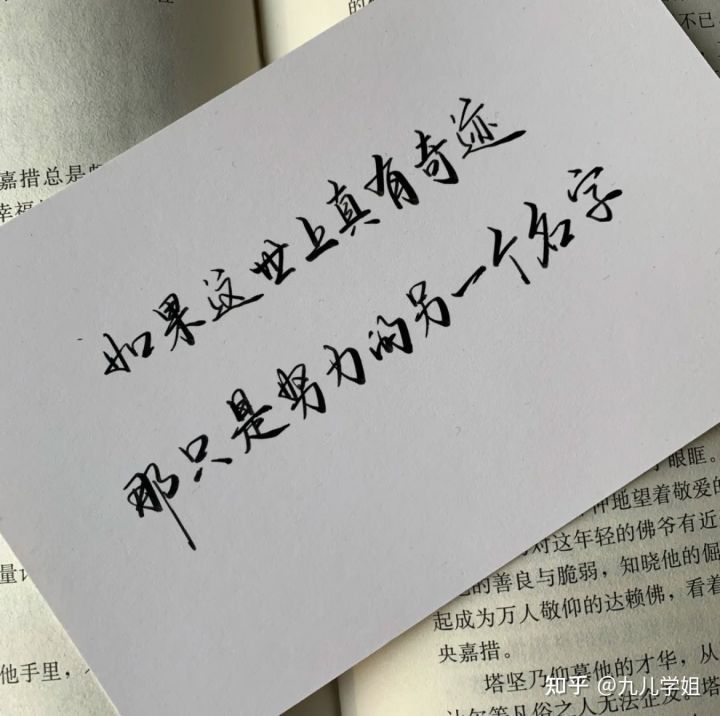 的
不已
嘉措总是
幸福
如果这世上真有奇迹
那只是努力的另一个名字
眼眶。
地望着敬爱的
对这年轻的佛爷有近
的善良与脆弱，知晓他的倔
起成为万人敬仰的达赖佛，看着
央嘉措。
塔坚乃仰慕他的才华，从
等凡俗之人无法企及。塔
量
他手里，
知乎 @九儿学姐